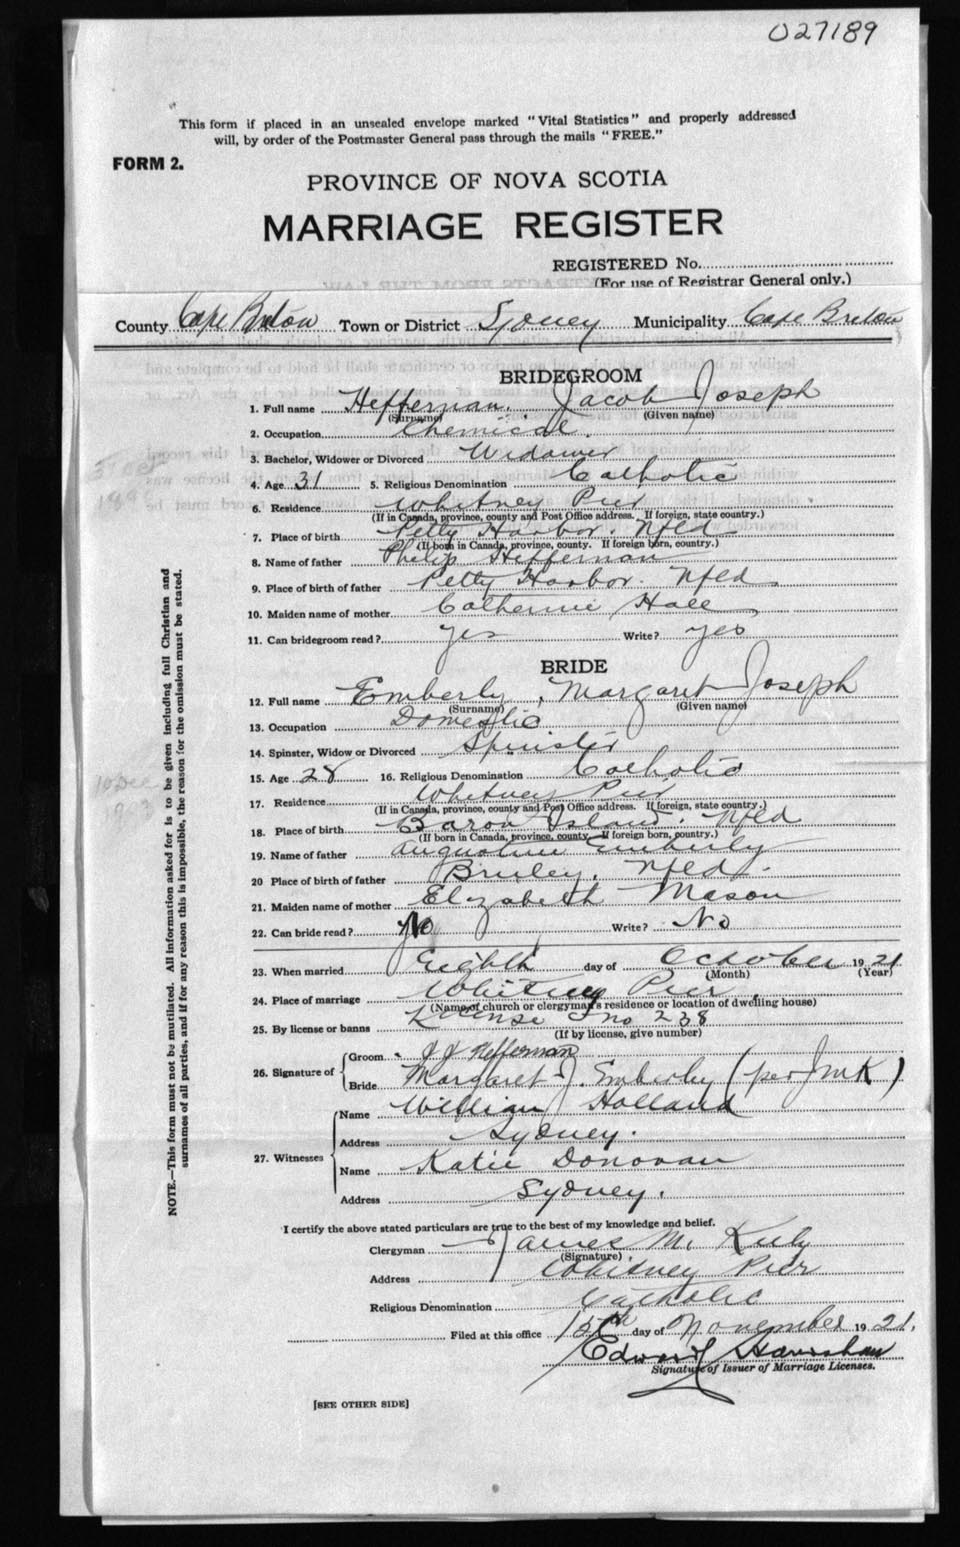 027189
This form if placed in an unsealed envelope marked "Vital Statistics" and properly addressed
will, by order of the Postmaster General pass through the mails "FREE."
FORM 2.
PROVINCE OF NOVA SCOTIA
MARRIAGE REGISTER
REGISTERED No.
(For use of Registrar General only.)
County Cape Breton Town or District Sydney Municipality Cape Breton
BRIDEGROOM
1. Full name Heffernan, Jacob Joseph
(Surname) (Given name)
2. Occupation Chemical.
3. Bachelor, Widower or Divorced Widower
4. Age 31 5. Religious Denomination Catholic
6. Residence Whitney Pier
(If in Canada, province, county and Post Office address. If foreign, state country.)
7. Place of birth Petty Harbor Nfld
(If born in Canada, province, county. If foreign born, country.)
8. Name of father Philip Heffernan
9. Place of birth of father Petty Harbor. Nfld
10. Maiden name of mother Catherine Hall
11. Can bridegroom read? yes Write? yes
BRIDE
12. Full name Emberly, Margaret Joseph
(Surname) (Given name)
13. Occupation Domestic
14. Spinster, Widow or Divorced Spinster
15. Age 28 16. Religious Denomination Catholic
17. Residence Whitney Pier
(If in Canada, province, county and Post Office address. If foreign, state country.)
18. Place of birth Baron Island. Nfld
(If born in Canada, province, county. If foreign born, country.)
19. Name of father Augustine Emberly
20 Place of birth of father Bruley, Nfld.
21. Maiden name of mother Elizabeth Mason
22. Can bride read? No Write? No
23. When married Eighth day of October 1921
(Month) (Year)
24. Place of marriage Whitney Pier
(Name of church or clergyman's residence or location of dwelling house)
25. By license or banns License no 238
(If by license, give number)
26. Signature of
Groom J J Heffernan
Bride Margaret J. Emberly (per JMK)
27. Witnesses
Name William Holland
Address Sydney.
Name Katie Donovan
Address Sydney.
I certify the above stated particulars are true to the best of my knowledge and belief.
Clergyman James M.
(Signature)
Address Whitney Pier
Religious Denomination Catholic
Filed at this office 15th day of November 1921.
Edward
Signature of Issuer of Marriage Licenses.
[SEE OTHER SIDE]
NOTE.—This form must not be mutilated. All information asked for is to be given including full Christian and
surnames of all parties, and if for any reason this is impossible, the reason for the omission must be stated.
10 Dec